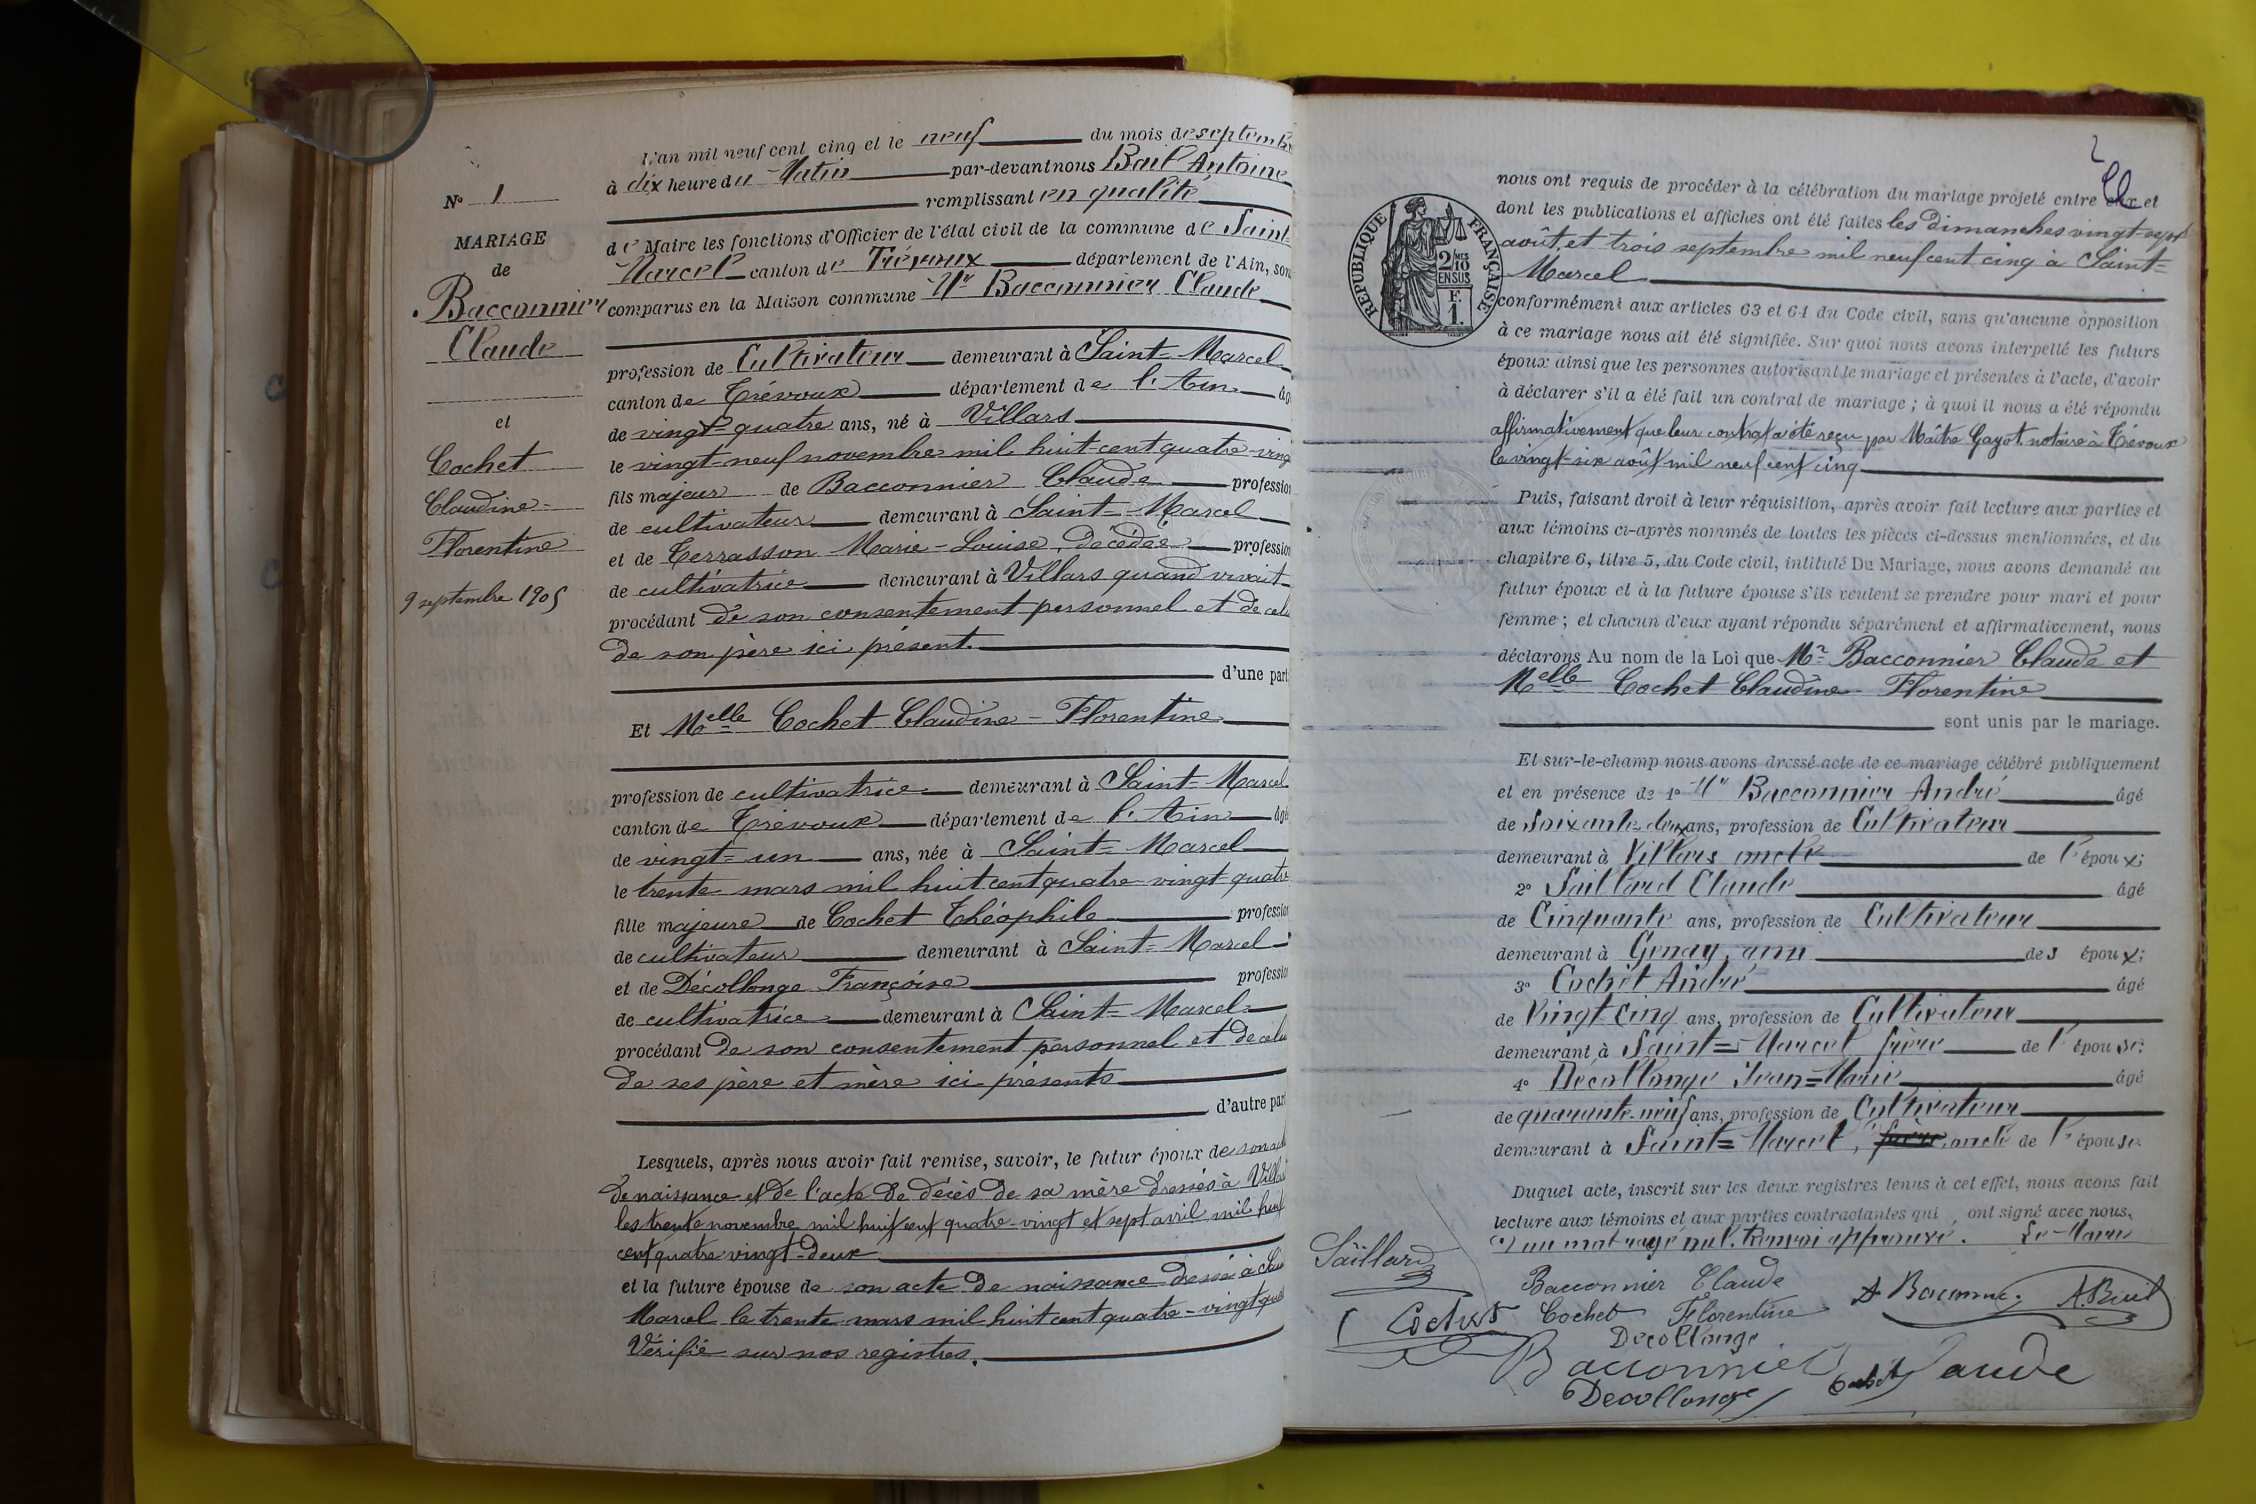 N° 1
MARIAGE
de
Bacconnier
Claude
et
Cochet
Claudine-
Florentine
9 septembre 1905
L'an mil neuf cent cinq et le neuf du mois de septembre
à dix heure du Matin par-devant nous Bail Antoine
remplissant en qualité
de Maire les fonctions d'Officier de l'état civil de la commune de Saint-
Marcel canton de Trévoux département de l'Ain, sont
comparus en la Maison commune Mr Bacconnier Claude
profession de Cultivateur demeurant à Saint-Marcel
canton de Trévoux département de l'Ain âgé
de vingt-quatre ans, né à Villars
le vingt-neuf novembre mil huit cent quatre-vingt
fils majeur de Bacconnier Claude profession
de cultivateur demeurant à Saint-Marcel
et de Terrasson Marie-Louise, décédée profession
de cultivatrice demeurant à Villars quand vivait
procédant de son consentement personnel et de celui
de son père ici présent.
d'une part
Et Melle Cochet Claudine-Florentine
profession de cultivatrice demeurant à Saint-Marcel
canton de Trévoux département de l'Ain âgé
de vingt-un ans, née à Saint-Marcel
le trente mars mil huit cent quatre-vingt-quatre
fille majeure de Cochet Théophile profession
de cultivateur demeurant à Saint-Marcel
et de Décollonge Françoise profession
de cultivatrice demeurant à Saint-Marcel
procédant de son consentement personnel et de celui
de ses père et mère ici présents
d'autre part
Lesquels, après nous avoir fait remise, savoir, le futur époux de son acte
de naissance et de l'acte de décès de sa mère dressés à Villars
les trente novembre mil huit cent quatre-vingt et sept avril mil huit
cent quatre vingt-deux
et la future épouse de son acte de naissance dressé à Saint
Marcel le trente mars mil huit cent quatre-vingt quatre
Vérifié sur nos registres.
2
RÉPUBLIQUE FRANÇAISE
2 MES
10
EN SUS
F.
1.
nous ont requis de procéder à la célébration du mariage projeté entre eux et
dont les publications et affiches ont été faites les dimanches vingt-sept
août et trois septembre mil neuf cent cinq à Saint-
Marcel
conformément aux articles 63 et 64 du Code civil, sans qu'aucune opposition
à ce mariage nous ait été signifiée. Sur quoi nous avons interpellé les futurs
époux ainsi que les personnes autorisant le mariage et présentes à l'acte, d'avoir
à déclarer s'il a été fait un contrat de mariage ; à quoi il nous a été répondu
affirmativement que leur contrat a été reçu par Maître Gayot notaire à Trévoux
le vingt-six août mil neuf cent cinq
Puis, faisant droit à leur réquisition, après avoir fait lecture aux parties et
aux témoins ci-après nommés de toutes les pièces ci-dessus mentionnées, et du
chapitre 6, titre 5, du Code civil, intitulé Du Mariage, nous avons demandé au
futur époux et à la future épouse s'ils veulent se prendre pour mari et pour
femme ; et chacun d'eux ayant répondu séparément et affirmativement, nous
déclarons Au nom de la Loi que Mr Bacconnier Claude et
Melle Cochet Claudine-Florentine
sont unis par le mariage.
Et sur-le-champ nous avons dressé acte de ce mariage célébré publiquement
et en présence de 1° Mr Bacconnier André âgé
de soixante-deux ans, profession de Cultivateur
demeurant à Villars oncle de l'époux;
2° Saillard Claude âgé
de Cinquante ans, profession de Cultivateur
demeurant à Genay, ami des époux;
3° Cochet André âgé
de Vingt-cinq ans, profession de Cultivateur
demeurant à Saint-Marcel frère de l'épouse:
4° Décollonge Jean-Marie âgé
de quarante-neuf ans, profession de Cultivateur
demeurant à Saint-Marcel, frère oncle de l'épouse
Duquel acte, inscrit sur les deux registres tenus à cet effet, nous avons fait
lecture aux témoins et aux parties contractantes qui ont signé avec nous.
un mot rayé nul. Renvoi approuvé. Le Maire
Saillard
Bacconnier Claude
A Bacconnier
A. Bail
Cochet
Cochet Florentine
Decollonge
Bacconnier Claude
Cochet
Decollonge